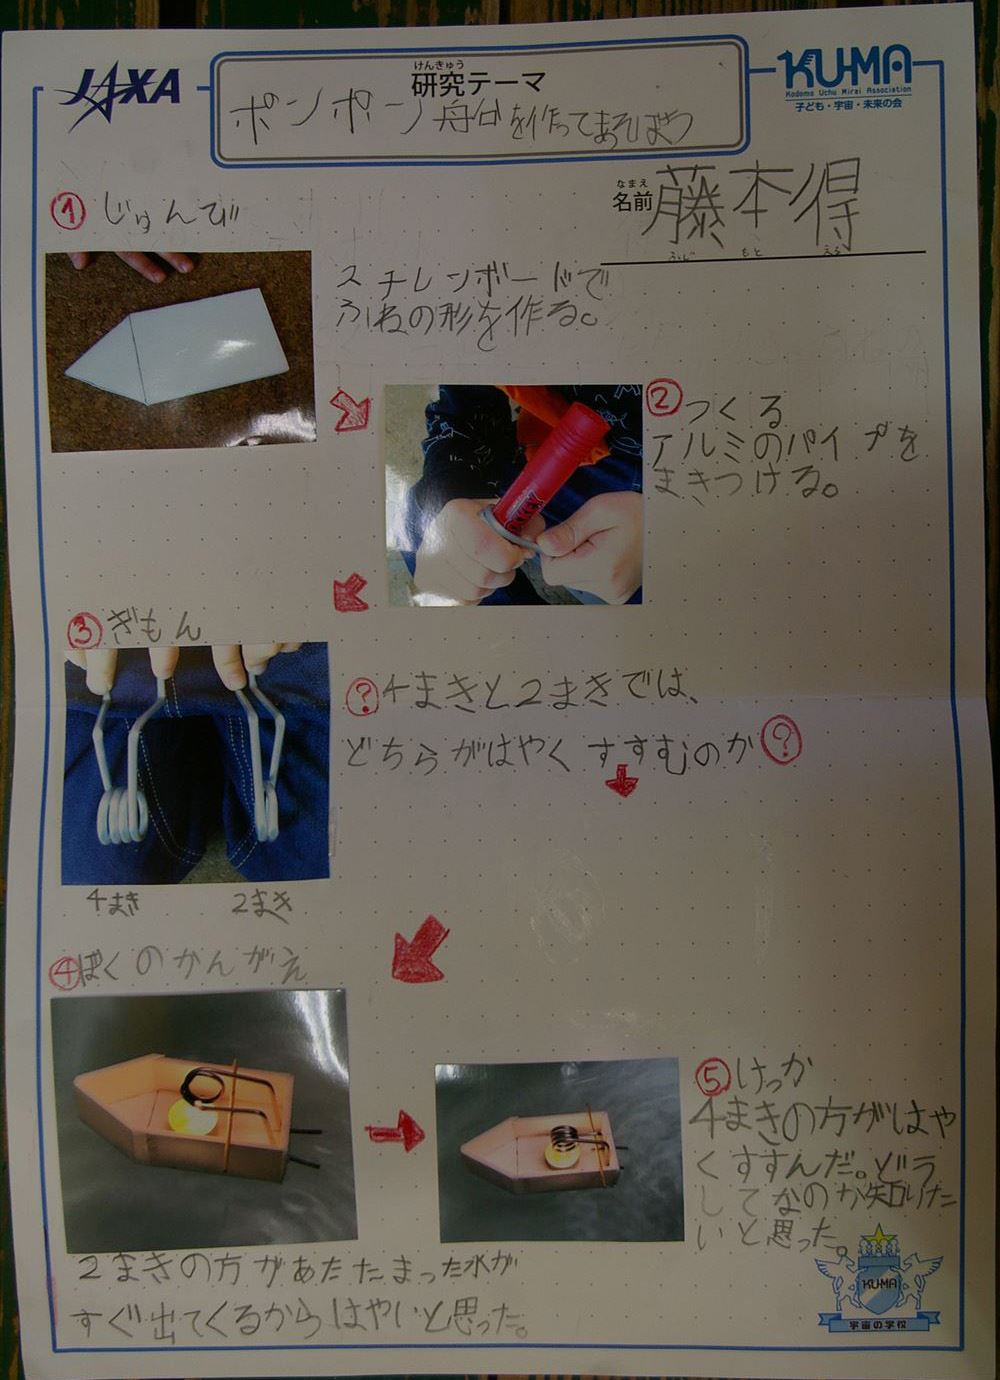 JAXA
けんきゅう
研究テーマ
ポンポン船を作ってあそぼう
KU-MA
Kodomo Uchu Mirai Association
子ども・宇宙・未来の会
なまえ
名前 藤本得
ふじ もと える
① じゅんび
スチレンボードで
ふねの形を作る。
② つくる
アルミのパイプを
まきつける。
③ ぎもん
? 4まきと2まきでは、
どちらがはやくすすむのか?
4まき 2まき
④ ぼくのかんがえ
2まきの方があたたまった水が
すぐ出てくるからはやいと思った。
⑤ けっか
4まきの方がはや
くすすんだ。どう
してなのか知りた
いと思った。
KU-MA
宇宙の学校